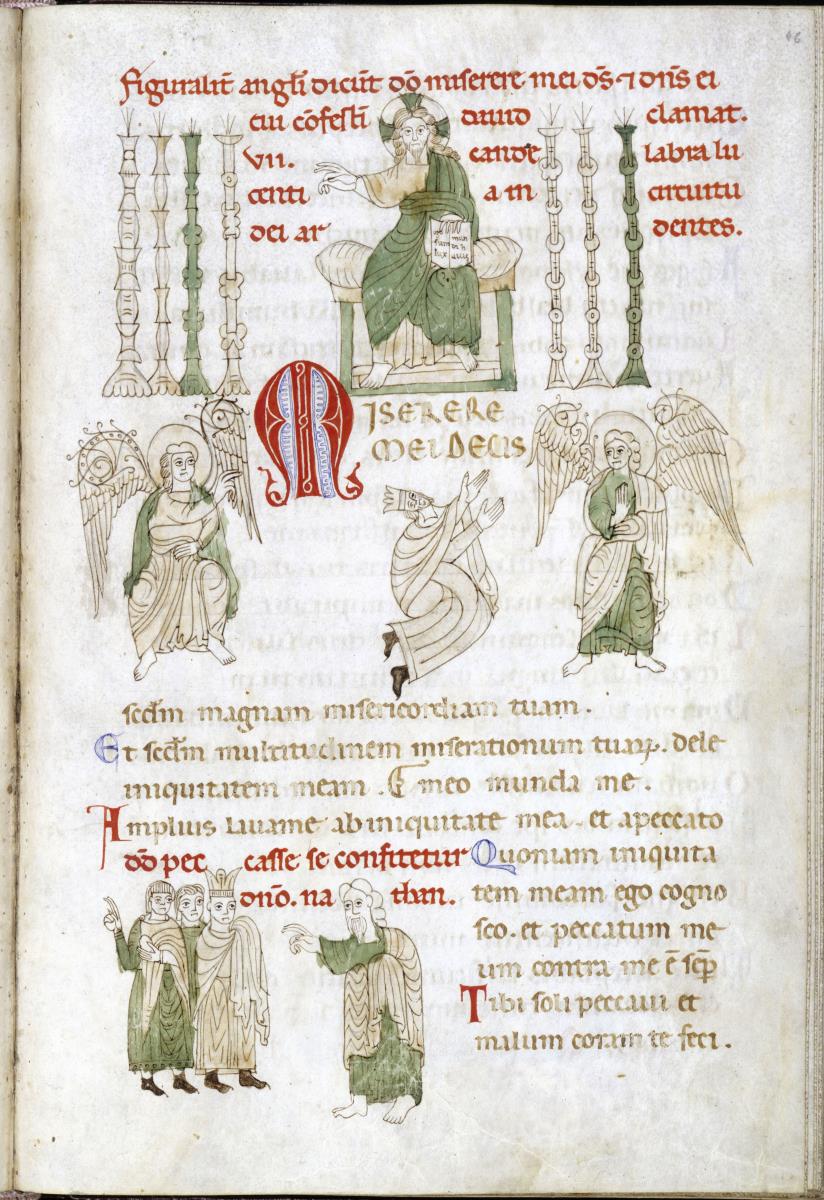 46
Figuralit͛ angl̅i dicūt dd̅ miserere mei d̅s ⁊ dn̅s ei
cui cōfesti dauid clamat.
VII. cande labra lu
centi a in circuitu
dei ar dentes.
MISERERE
MEI DEUS
scd̅m magnam misericordiam tuam.
Et scd̅m multitudinem miserationum tuaꝝ. dele
iniquitatem meam.
Amplius lauame abiniquitate mea. et apeccato
meo munda me.
dd̅ pec casse se confitetur
dn̅o. na than.
Quoniam iniquita
tem meam ego cogno
sco. et peccatum me
um contra me ē sēp̄
Tibi soli peccaui et
malum coram te feci.